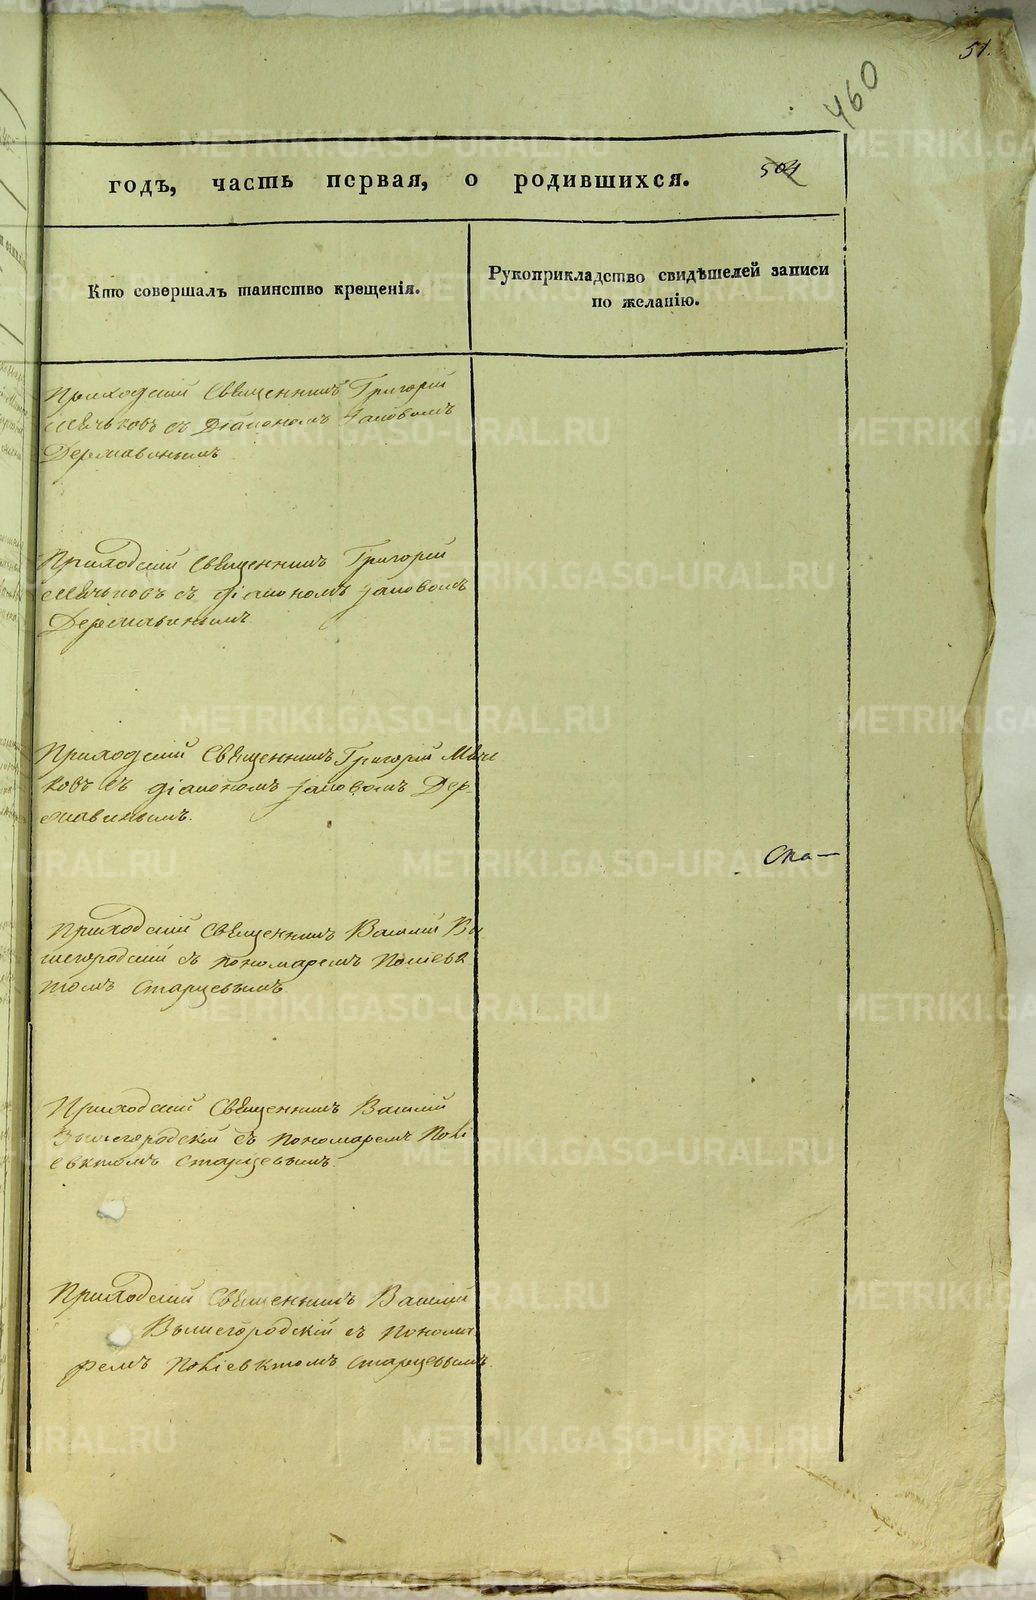 51.
460
504
годъ, часть первая, о родившихся.
Кто совершалъ таинство крещенія.
Рукоприкладство свидѣтелей записи
по желанію.
Приходскій Священникъ Григорій
Мѣчьковъ съ Діакономъ Іаковомъ
Державинымъ
Приходскій Священникъ Григорій
Мѣчьковъ съ діакономъ Іаковомъ
Державинымъ
Приходскій Священникъ Григорій Мѣчь
ковъ съ діакономъ Іаковомъ Дер-
жавинымъ.
Ска—
Приходскій Священникъ Василій Вы
шегородскій съ пономаремъ Поліевк
томъ Старцевымъ
Приходскій Священникъ Василій
Вышегородскій съ пономаремъ Полі
евктомъ Старцевымъ
Приходскій Священникъ Василій
Вышегородскій съ Понома
ремъ Поліевктомъ Старцевымъ.
METRIKI.GASO-URAL.RU